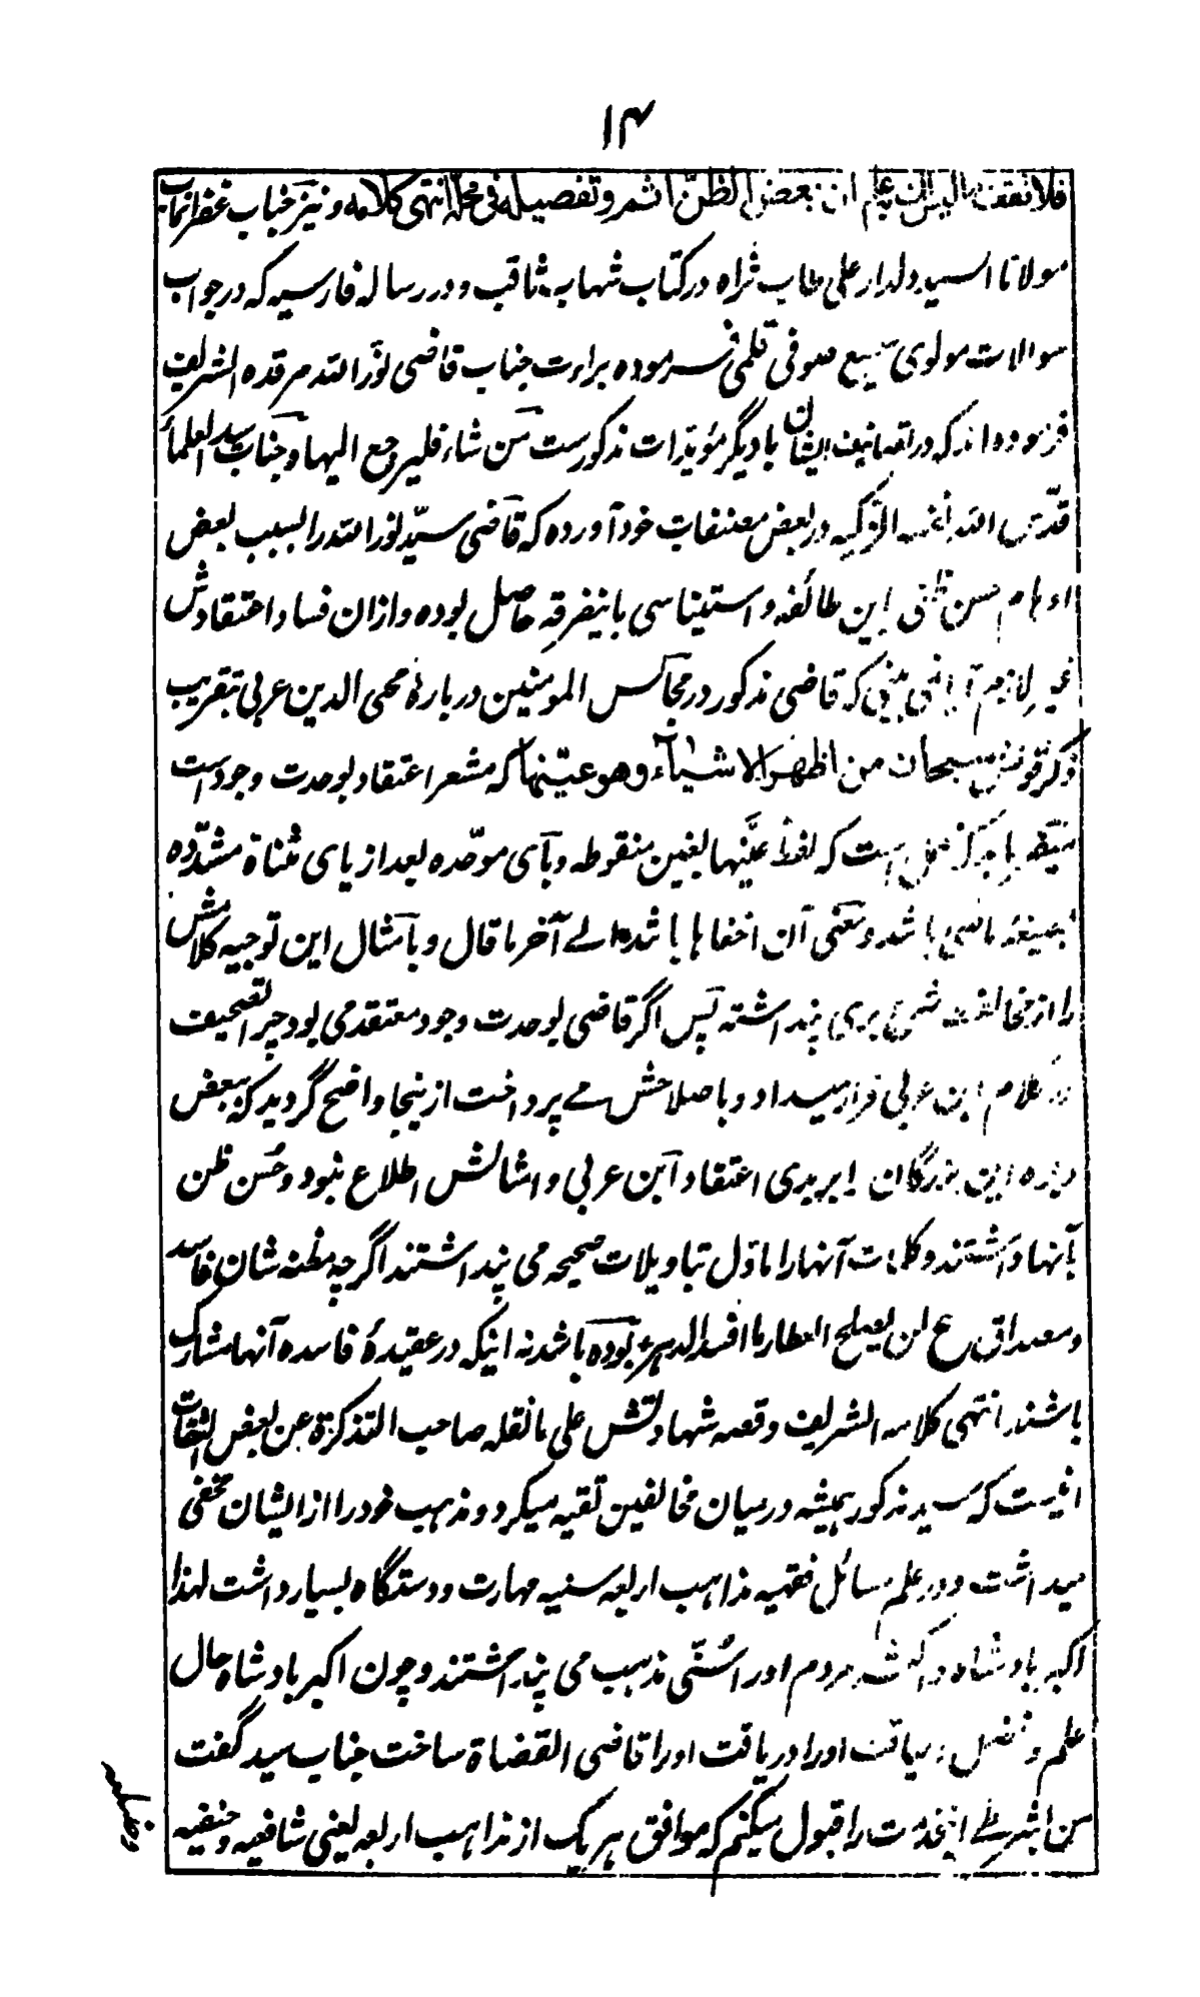 ۱۴
فلا تقف ما لیس لک به علم ان بعض الظن اثم و تفصیله فی محله انتهی کلامه و نیز جناب غفرانمآب
مولانا السید دلدار علی طاب ثراه در کتاب شهاب ثاقب و در رساله فارسیه که در جواب
سوالات مولوی سمیع صوفی قلمی فرموده براءت جناب قاضی نور الله مرقده الشریف
فرموده اند که در تصانیف ایشان با دیگر مؤیدات مذکورست من شاء فلیرجع الیها و جناب سید العلماء
قدّس الله نفسه الزکیه در بعض مصنفات خود آورده که قاضی سیّد نور الله را بسبب بعض
اوهام حسن ظنی باین طائفه و استیناسی باینفرقه حاصل بوده و ازان فساد اعتقادش
غیر لازم آیا نمی بینی که قاضی مذکور در مجالس المومنین در بارهٔ محی الدین عربی بتقریب
ذکر قولش سبحان من اظهر الاشیاء وهو عینها که مشعر اعتقاد بوحدت وجود است
که لفظ غیّبها بغین منقوطه و بای موحّده بعد از یای مثناة مشدّده
بصیغهٔ ماضی باشد و معنی آن اخفاها باشد الے آخر ما قال و بامثال این توجیه کلامش
را از مخالفت شرع بری پنداشته پس اگر قاضی بوحدت وجود معتقد می بود چرا تصحیف
در کلام ابن عربی قرار میداد و باصلاحش مے پرداخت از ینجا واضح گردید که بعض
این بزرگان را بر بدی اعتقاد ابن عربی و امثالش اطلاع نبود و حُسن ظن
بآنها داشتند و کلمات آنها را ماوّل بتاویلات صحیحه می پنداشتند اگر چه مظنه شان فاسد
و مصداق ع لن یصلح العطار ما افسد الدهر بوده باشد نه اینکه در عقیدهٔ فاسده آنها مشارک
باشند انتهی کلامه الشریف و قصه شهادتش علی ما نقله صاحب التذکرة عن بعض الثقات
اینست که سید مذکور همیشه در میان مخالفین تقیه میکرد و مذهب خود را از ایشان مخفی
میداشت و در علم مسائل فقهیه مذاهب اربعه سنیه مهارت و دستگاه بسیار داشت لهذا
اکبر بادشاه و اکثر مردم او را سُنّی مذهب می پنداشتند و چون اکبر بادشاه حال
علم و فضل و لیاقت او را دریافت او را قاضی القضاة ساخت جناب سید گفت
من بشرطے اینخدمت را قبول میکنم که موافق هر یک از مذاهب اربعه یعنی شافعیه و حنفیه